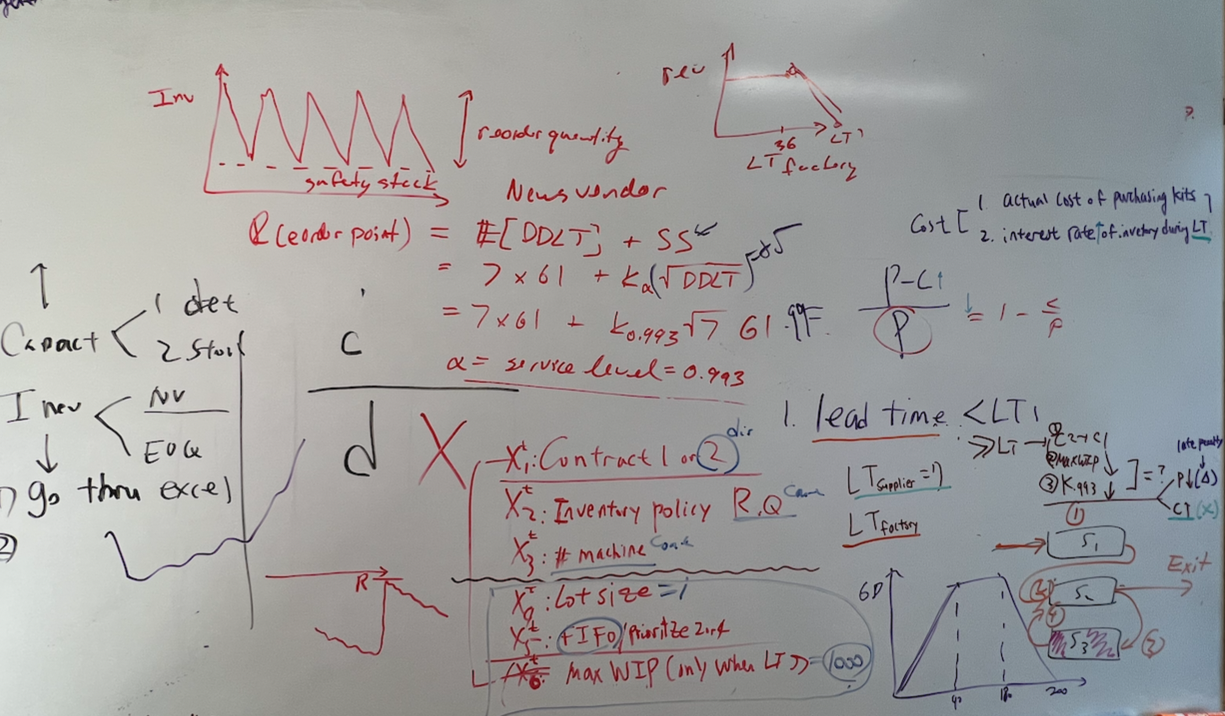 Inv
reorder quantity
safety stock
rev
36
LT'
LT factory
Newsvendor
R(eorder point) = E[DDLT] + SS
= 7 × 61 + kα(√DDLT)
= 7 × 61 + k0.993 √7 61
α = service level = 0.993
Cost [
1. actual cost of purchasing kits
2. interest rate↑ of invetory during LT
P-C↑
P
↓ = 1 - c/p
Capact
1 det
2 Stoc
Inev
NV
EOQ
go thru excel
2
c
d
X
X₁ᵗ: Contract 1 or 2
X₂ᵗ: Inventory policy R, Q
X₃ᵗ: # machine
Lot size = 1
FIFO/prioritize 2 or 4
X₆ᵗ: max WIP (only when LT) = 1000
R
1. lead time < LT1
≥ LT →
① C2→C1
② MAXWIP
③ K.993 ↓
] = ?
late penalty
P↓(Δ)
CT (X)
LT supplier =
LT factory
1
S1
S2
S3
Exit
200